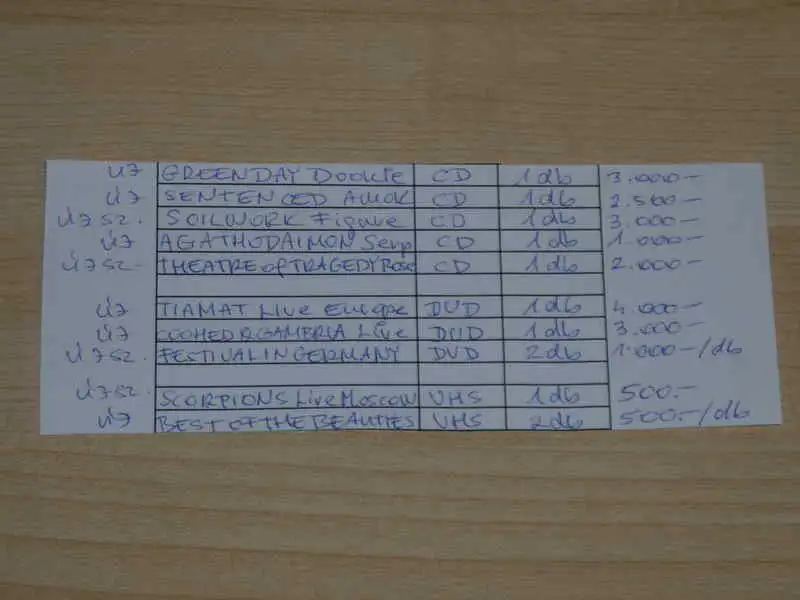 ÚJ GREENDAY Dookie CD 1db 3.000-
ÚJ SENTENCED Amok CD 1db 2.500-
ÚJSZ. SOILWORK Figure CD 1db 3.000-
ÚJ AGATHODAIMON Serp CD 1db 1.000-
ÚJSZ- THEATRE of TRAGEDY Rose CD 1db 2.000-
ÚJ TIAMAT Live Europe DVD 1db 4.000-
ÚJ COOHED&CAMBRIA Live DVD 1db 3.000-
ÚJSZ. FESTIVAL IN GERMANY DVD 2db 1.000-/db
ÚJSZ. SCORPIONS Live Moscow VHS 1db 500.-
ÚJ BEST OF THE BEAUTIES VHS 2db 500.-/db